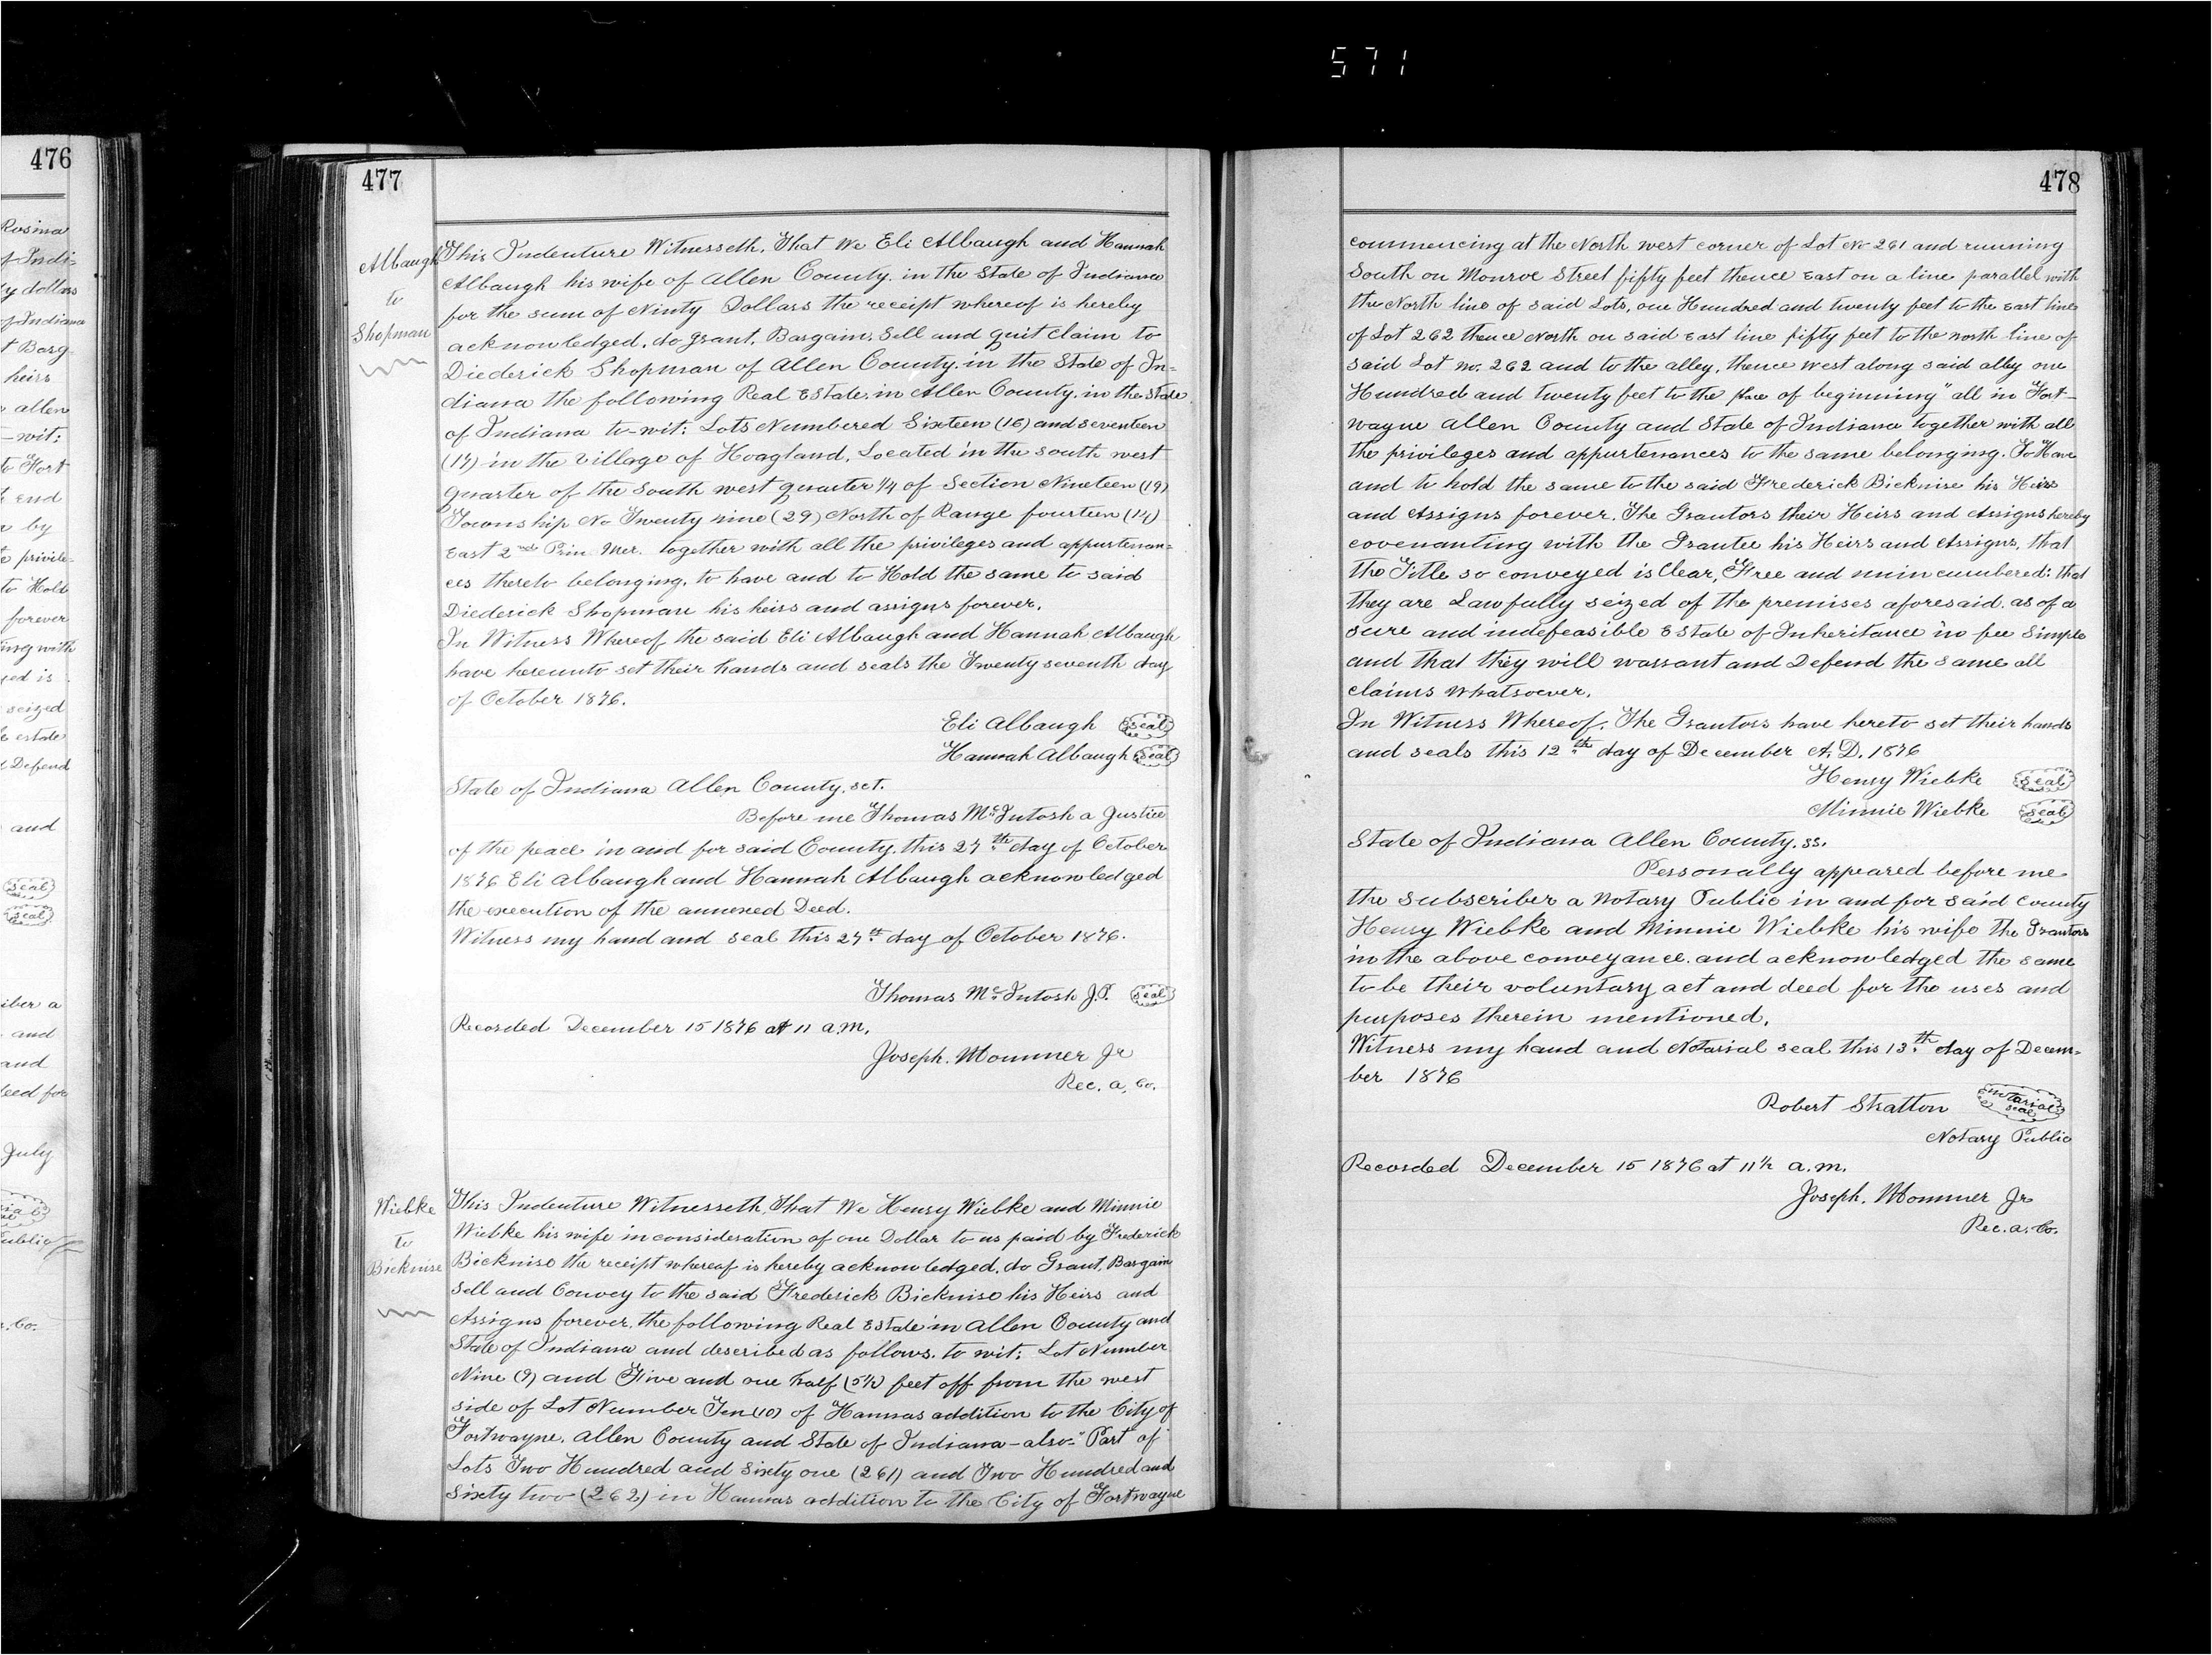 571
476
Rosina
of Indi-
ty dollars
of Indiana
t Barg
heirs
allen
-wit:
to Fort
t End
by
privile-
to Hold
forever
ing with
yed is
seized
estate
Defend
and
seal
seal
iber a
and
and
deed for
July
Public
. Co.
477
Albaugh
to
Shopman
This Indenture Witnesseth, That We Eli Albaugh and Hannah
Albaugh his wife of Allen County. in the State of Indiana
for the sum of Ninty Dollars the receipt whereof is hereby
acknowledged, do grant, Bargain, Sell and quit Claim to
Diederick Shopman of Allen County. in the State of In=
diana the following Real Estate. in Allen County. in the State
of Indiana to-wit: Lots Numbered Sixteen (16) and seventeen
(17) in the Village of Hoagland, Located in the south west
quarter of the South west quarter 1/4 of Section Nineteen (19)
Township No Twenty nine (29) North of Range fourteen (14)
East 2nd Prin. Mer. together with all the privileges and appurtenan=
ces thereto belonging, to have and to Hold the same to said
Diederick Shopman his heirs and assigns forever.
In Witness Whereof the said Eli Albaugh and Hannah Albaugh
have hereunto set their hands and seals the Twenty seventh day
of October 1876.
Eli Albaugh seal
Hannah Albaugh seal
State of Indiana Allen County, sct.
Before me Thomas McIntosh a Justice
of the peace in and for said County, this 27th day of October
1876 Eli Albaugh and Hannah Albaugh acknowledged
the execution of the annexed Deed.
Witness my hand and seal this 27th day of October 1876.
Thomas McIntosh J.P. seal
Recorded December 15 1876 at 11 a.m.
Joseph. Mommer Jr
Rec. a. Co.
Wiebke
to
Bicknise
This Indenture Witnesseth, That We Henry Wiebke and Minnie
Wiebke his wife in consideration of one Dollar to us paid by Frederick
Bicknise the receipt whereof is hereby acknowledged, do Grant, Bargain
Sell and Convey to the said Frederick Bicknise his Heirs and
Assigns forever, the following Real Estate in Allen County and
State of Indiana and described as follows. to wit: Lot Number
Nine (9) and Five and one half (5 1/2) feet off from the west
side of Lot Number Ten (10) of Hannas addition to the City of
Fortwayne, Allen County and State of Indiana - also - "Part of
Lots Two Hundred and Sixty one (261) and Two Hundred and
Sixty two (262) in Hannas addition to the City of Fortwayne
478
commencing at the North west corner of Lot No 261 and running
South on Monroe Street fifty feet thence East on a line parallel with
the North line of said Lots, one Hundred and twenty feet to the East line
of Lot 262 thence North on said East line fifty feet to the north line of
said Lot no. 262 and to the alley, thence west along said alley one
Hundred and twenty feet to the place of beginning" all in Fort-
wayne Allen County and State of Indiana together with all
the privileges and appurtenances to the same belonging. To Have
and to hold the same to the said Frederick Bicknise his Heirs
and Assigns forever. The Grantors their Heirs and Assigns hereby
covenanting with the Grantee his Heirs and Assigns, that
the Title so conveyed is Clear, Free and unincumbered: that
they are Lawfully seized of the premises aforesaid. as of a
sure and indefeasible Estate of Inheritance in fee Simple
and that they will warrant and Defend the same all
claims whatsoever.
In Witness Whereof. The Grantors have hereto set their hands
and seals this 12th day of December A.D. 1876
Henry Wiebke seal
Minnie Wiebke seal
State of Indiana Allen County. ss.
Personally appeared before me
the subscriber a Notary Public in and for said County
Henry Wiebke and Minnie Wiebke his wife the Grantors
in the above conveyance. and acknowledged the same
to be their voluntary act and deed for the uses and
purposes therein mentioned.
Witness my hand and Notarial seal this 13th day of Decem-
ber 1876
Robert Stratton notarial seal
Notary Public
Recorded December 15 1876 at 11 1/2 a.m.
Joseph. Mommer Jr
Rec. a. Co.